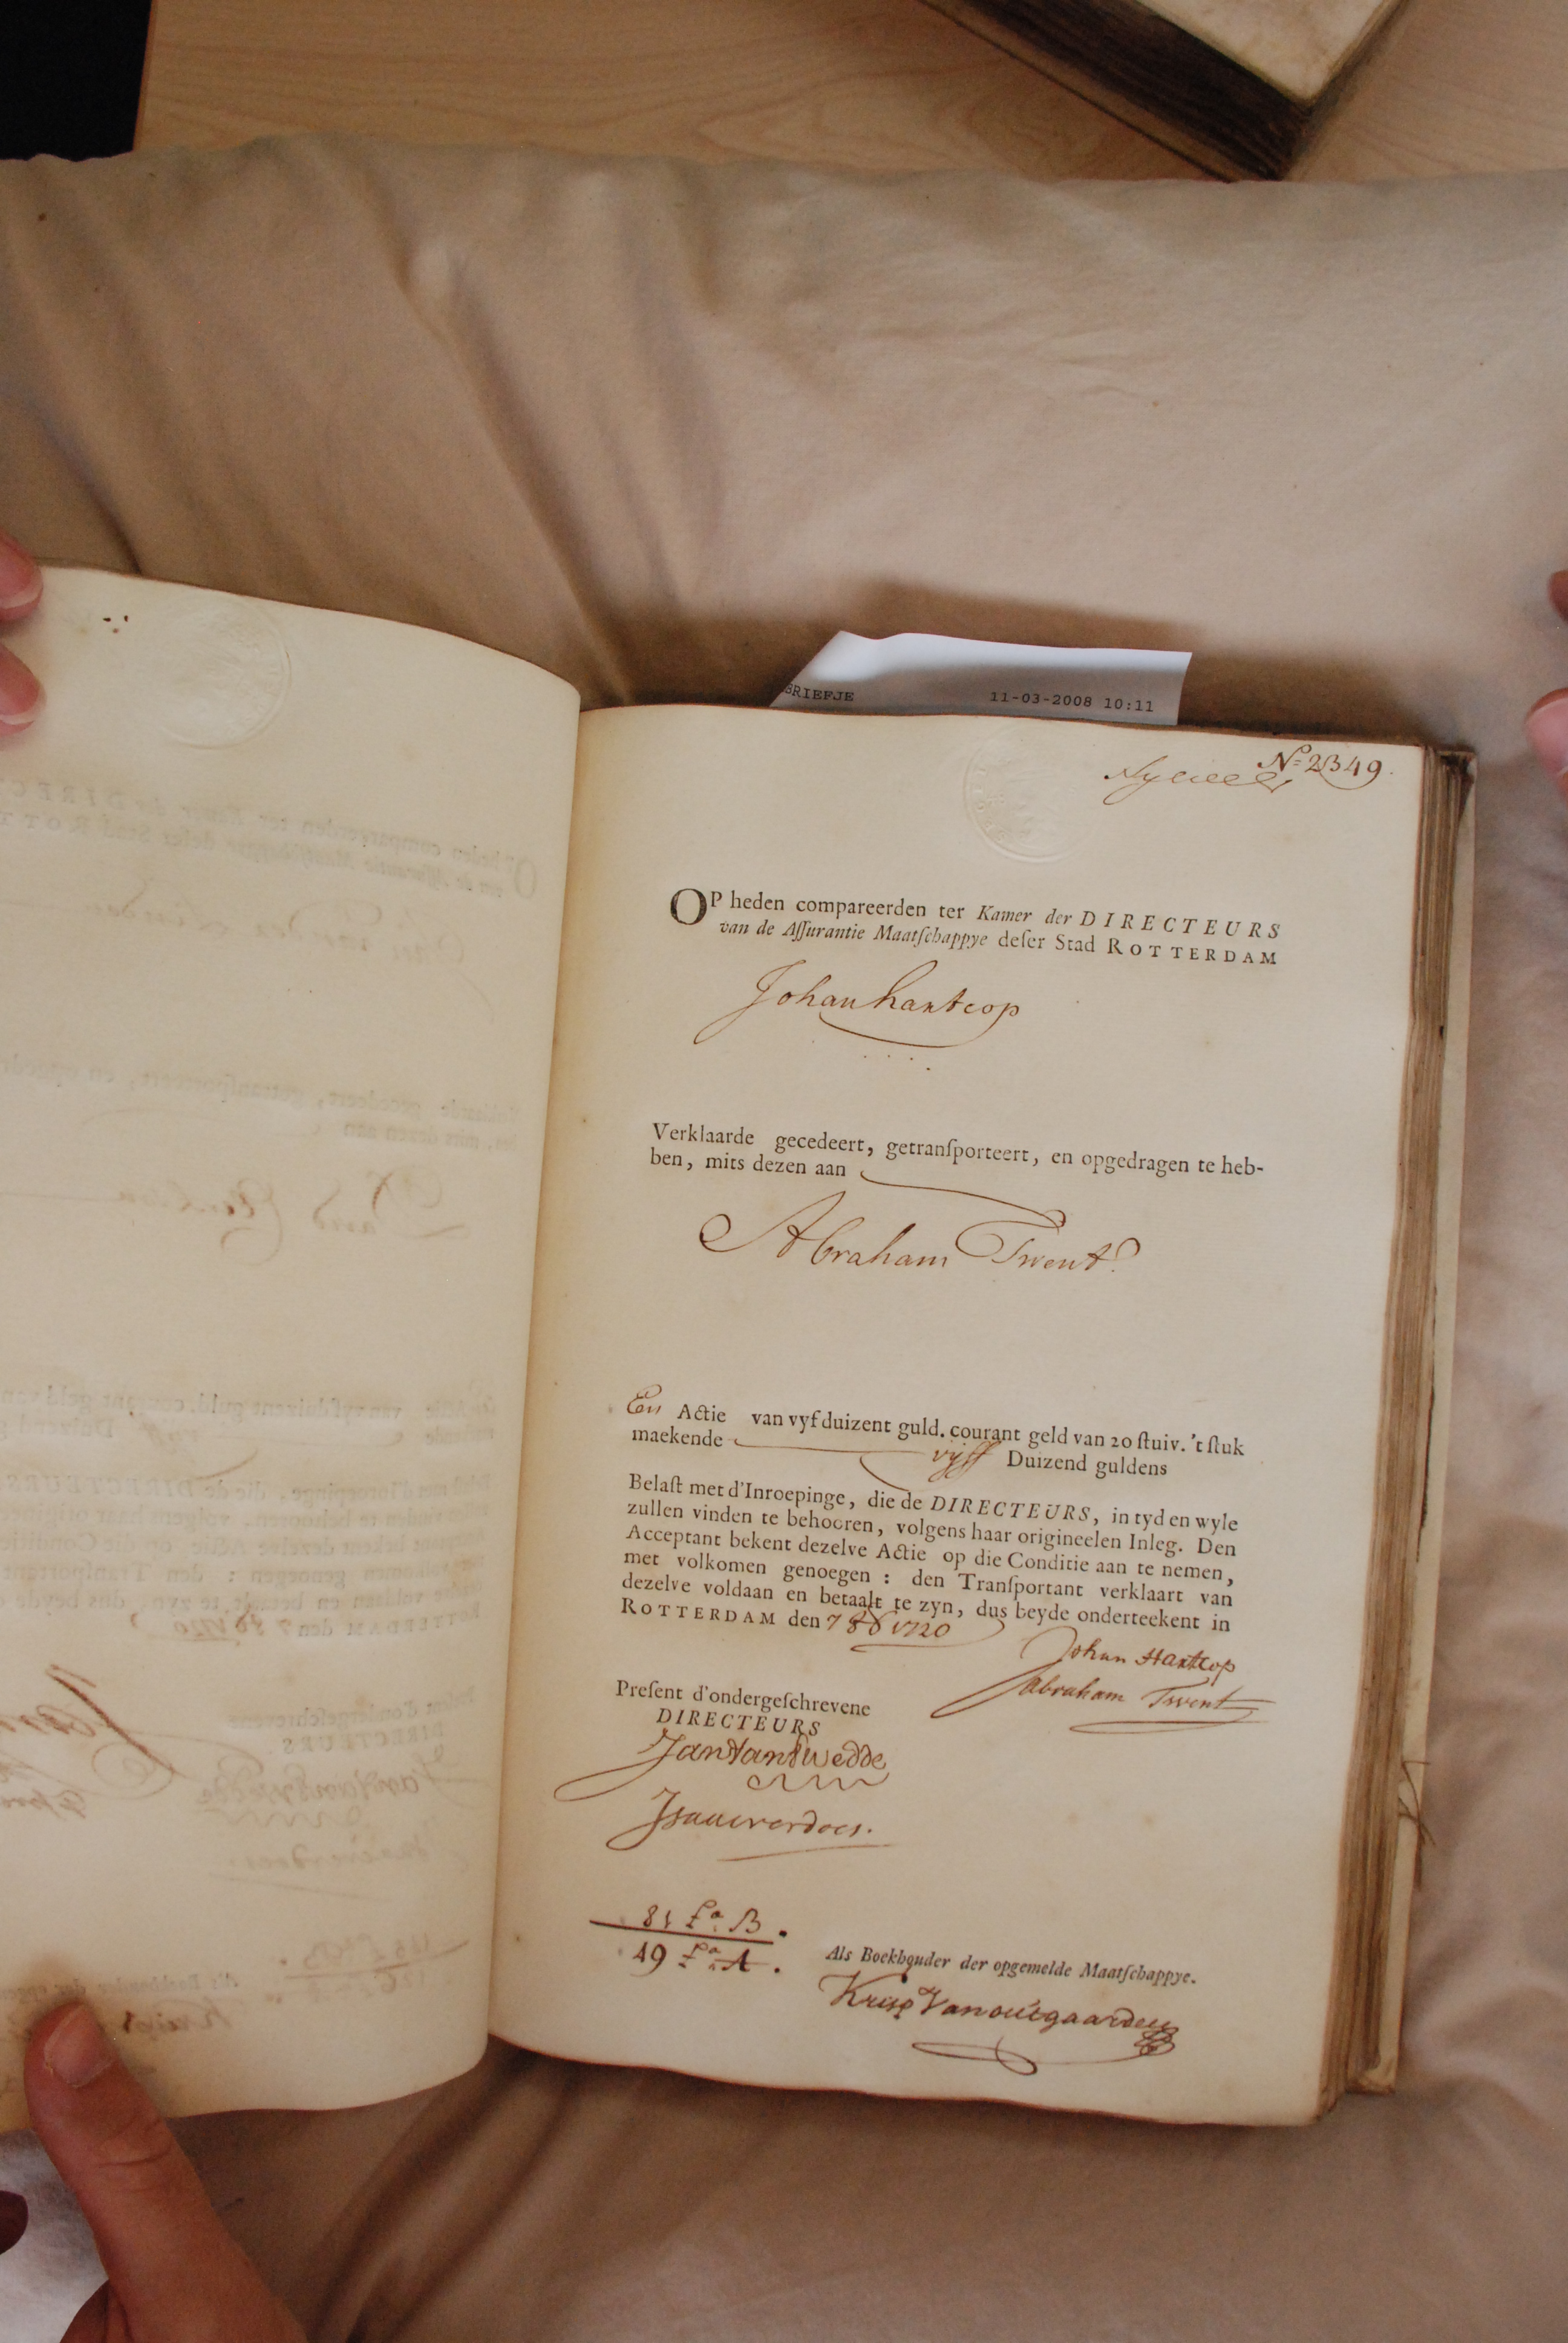 BRIEFJE 11-03-2008 10:11
No 2349.
OP heden compareerden ter Kamer der DIRECTEURS
van de Aſſurantie Maatſchappye deſer Stad ROTTERDAM
Johan hartcop
Verklaarde gecedeert, getranſporteert, en opgedragen te heb-
ben, mits dezen aan
Abraham Twent
Een Actie van vyf duizent guld. courant geld van 20 ſtuiv. 't ſtuk
maekende vijff Duizend guldens
Belaſt met d'Inroepinge, die de DIRECTEURS, in tyd en wyle
zullen vinden te behooren, volgens haar origineelen Inleg. Den
Acceptant bekent dezelve Actie op die Conditie aan te nemen,
met volkomen genoegen : den Tranſportant verklaart van
dezelve voldaan en betaalt te zyn, dus beyde onderteekent in
ROTTERDAM den 7 8b 1720
Johan Hartcop
Abraham Twent
Preſent d'ondergeſchrevene
DIRECTEURS
Jan Van Twedde
Isaac verdoes.
81 fo B.
49 fo A.
Als Boekhouder der opgemelde Maatſchappye.